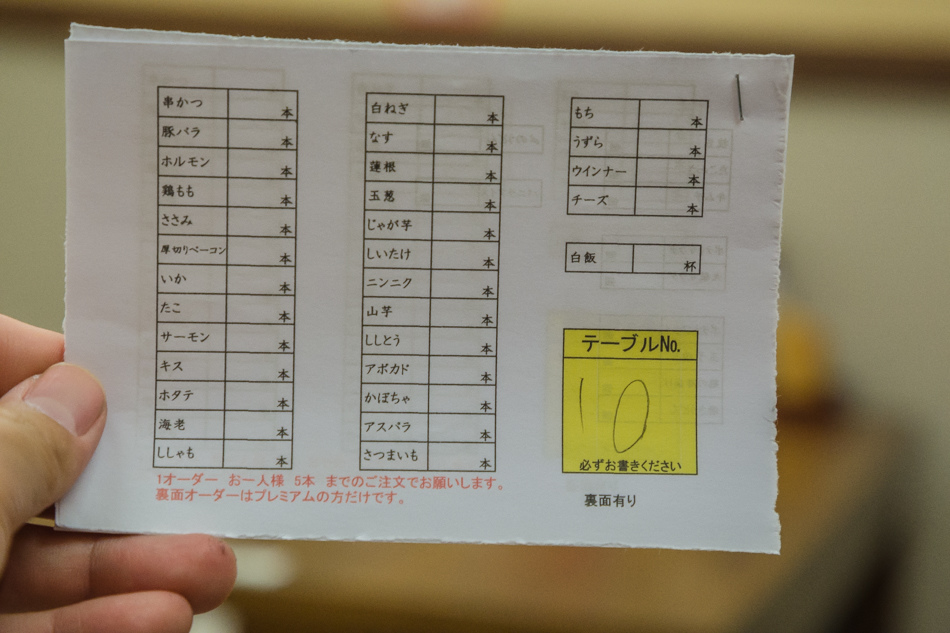 串かつ 本
豚バラ 本
ホルモン 本
鶏もも 本
ささみ 本
厚切りベーコン 本
いか 本
たこ 本
サーモン 本
キス 本
ホタテ 本
海老 本
ししゃも 本
白ねぎ 本
なす 本
蓮根 本
玉葱 本
じゃが芋 本
しいたけ 本
ニンニク 本
山芋 本
ししとう 本
アボカド 本
かぼちゃ 本
アスパラ 本
さつまいも 本
もち 本
うずら 本
ウインナー 本
チーズ 本
白飯 杯
テーブルNo.
10
必ずお書きください
裏面有り
1オーダー お一人様 5本 までのご注文でお願いします。
裏面オーダーはプレミアムの方だけです。